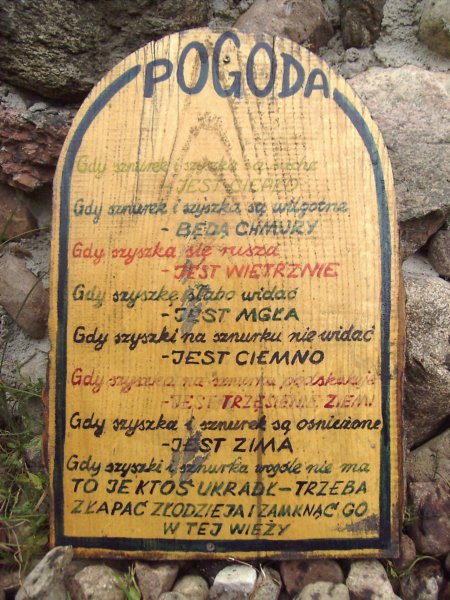 POGODA
Gdy sznurek i szyszka są suche
- JEST CIEPŁO
Gdy sznurek i szyszka są wilgotne
- BĘDĄ CHMURY
Gdy szyszka się rusza
- JEST WIETRZNIE
Gdy szyszkę słabo widać
- JEST MGŁA
Gdy szyszki na sznurku nie widać
- JEST CIEMNO
Gdy szyszka na sznurku podskakuje
- JEST TRZĘSIENIE ZIEMI
Gdy szyszka i sznurek są ośnieżone
- JEST ZIMA
Gdy szyszki i sznurka wogóle nie ma
TO JE KTOŚ UKRADŁ - TRZEBA
ZŁAPAĆ ZŁODZIEJA I ZAMKNĄĆ GO
W TEJ WIEŻY